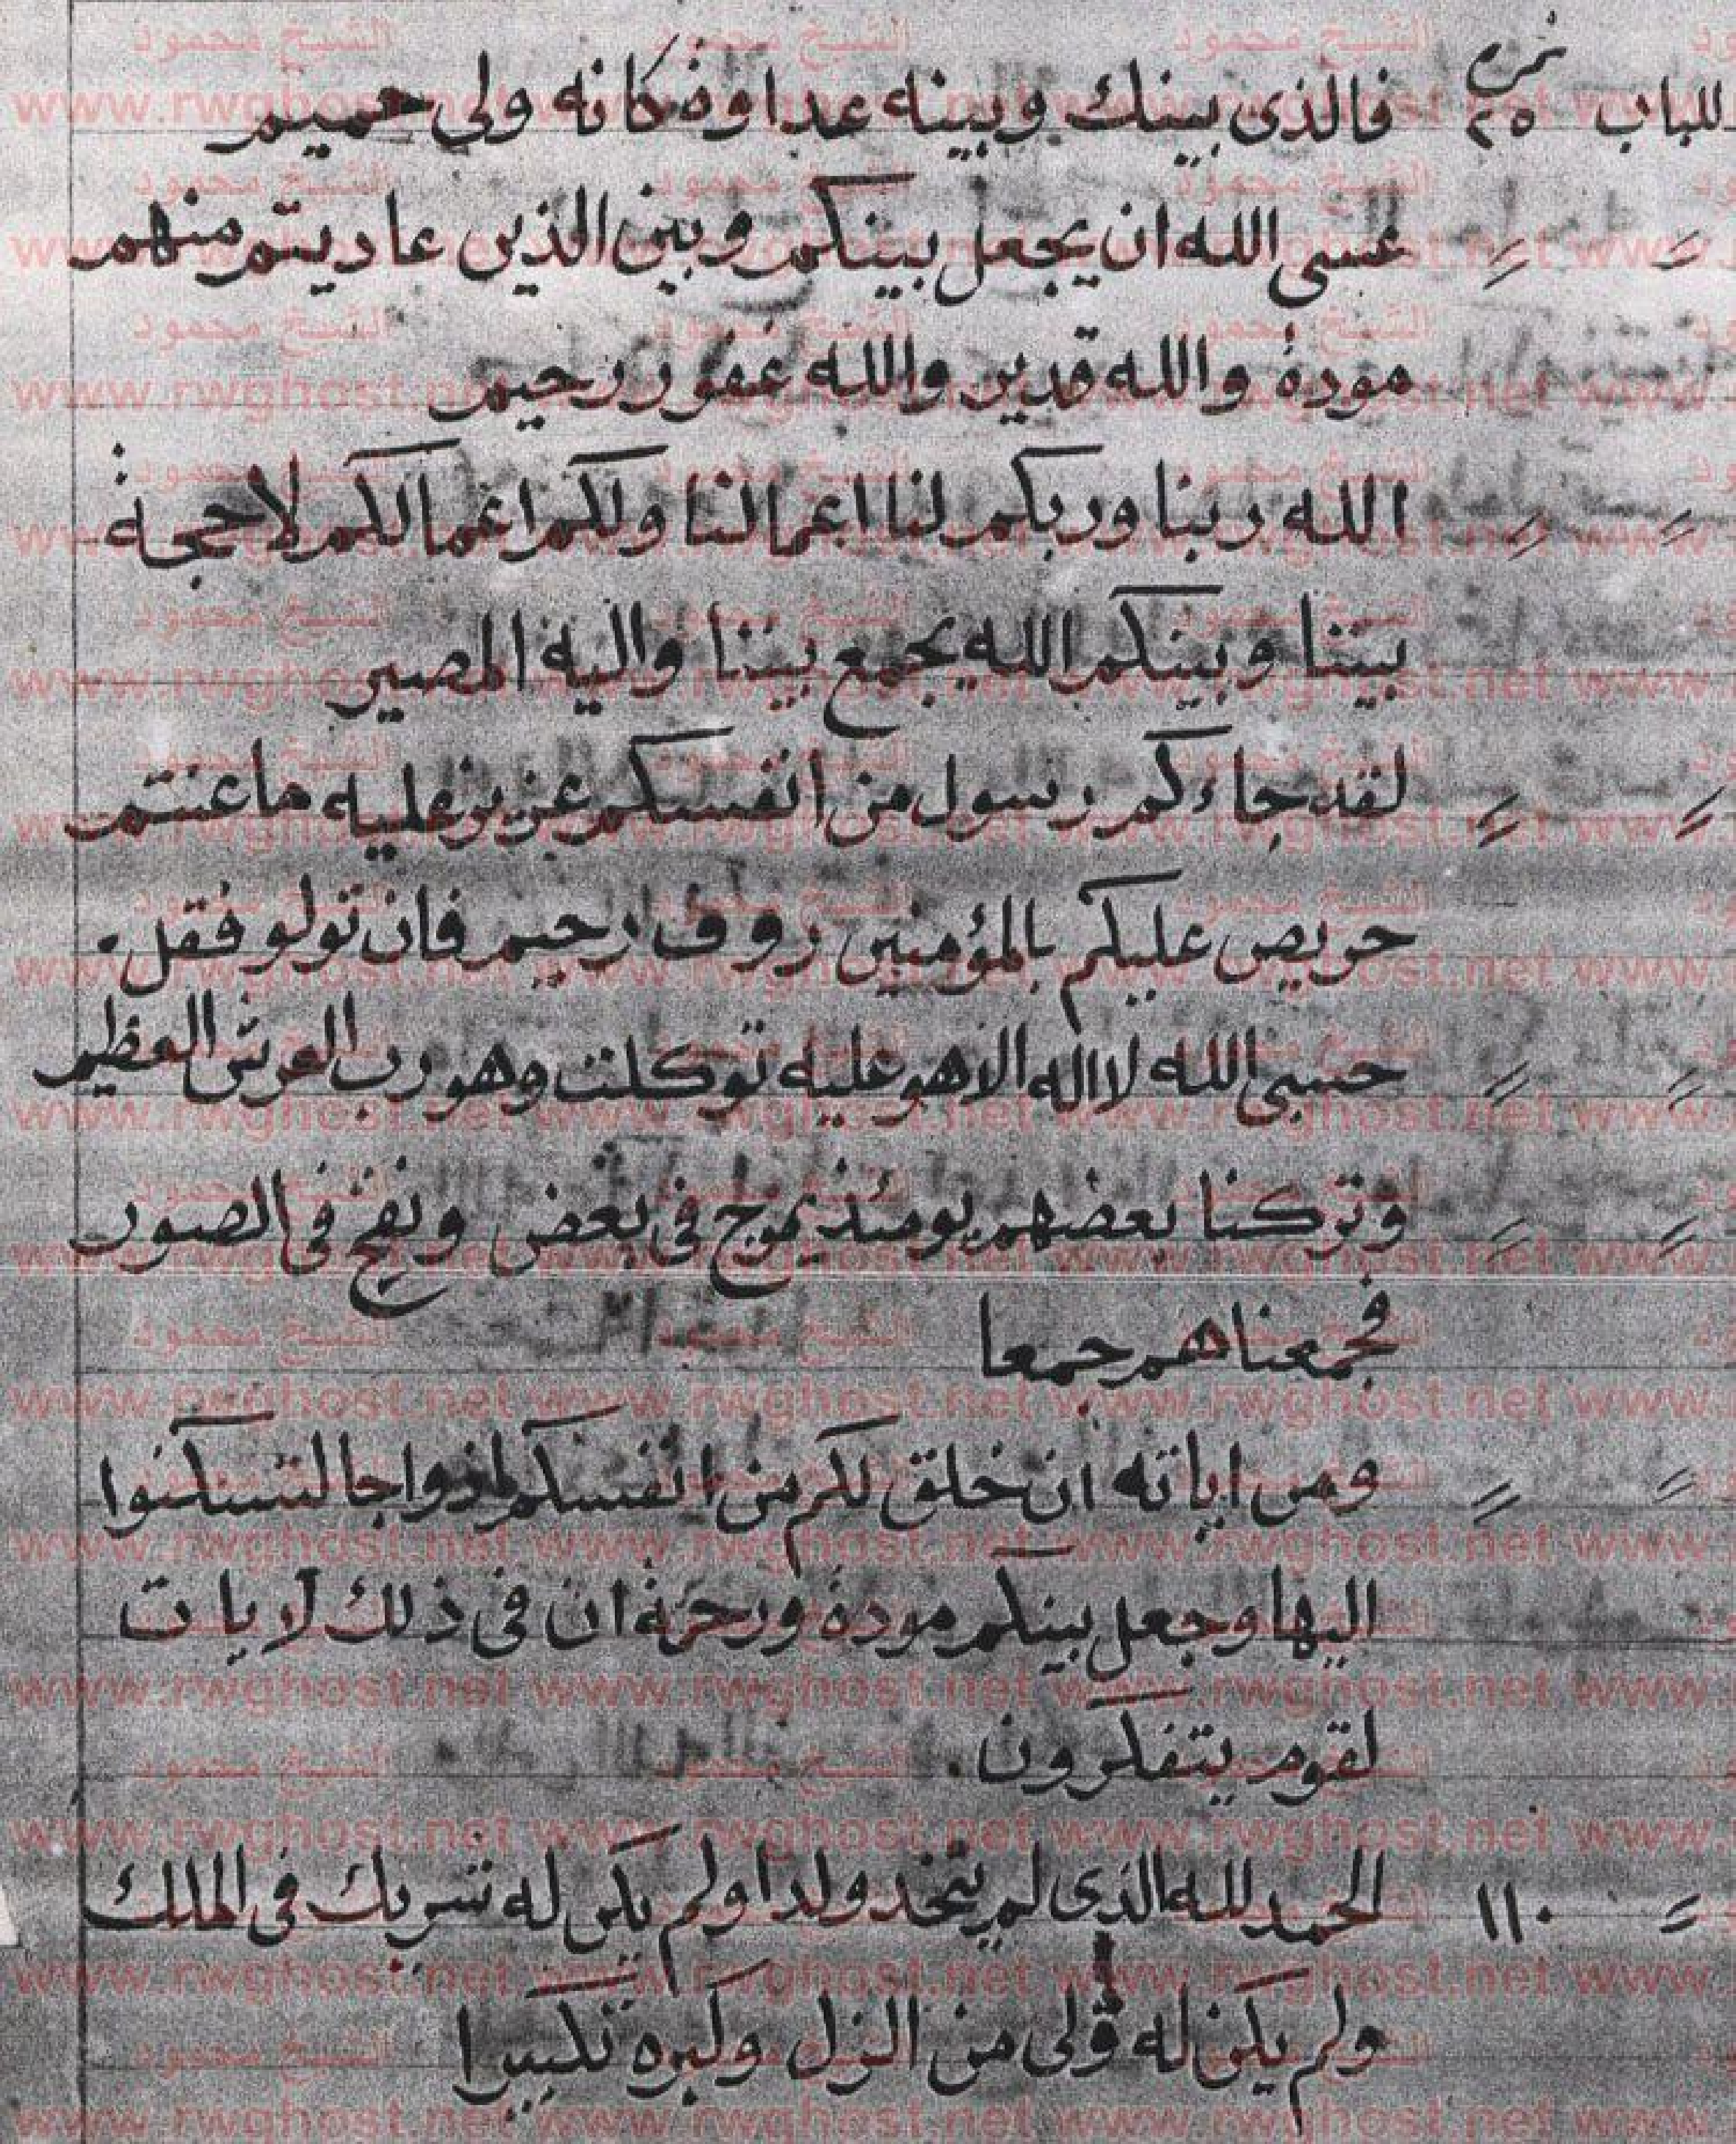 للباب نمرة ٢٥ فالذى بينك وبينه عداوة كانه ولى حميم
عسى الله ان يجعل بينكم وبين الذين عاديتم منهم
مودة والله قدير والله غفور رحيم
الله ربنا وربكم لنا اعمالنا ولكم اعمالكم لا حجة
بيننا وبينكم الله يجمع بيننا واليه المصير
لقد جاءكم رسول من انفسكم عزيز عليه ما عنتم
حريص عليكم بالمؤمنين روف رحيم فان تولو فقل
حسبى الله لا اله الا هو عليه توكلت وهو رب العرش العظيم
وتركنا بعضهم يومئذ يموج فى بعض ونفخ فى الصور
فجمعناهم جمعا
ومن اياته ان خلق لكم من انفسكم ازواجا لتسكنوا
اليها وجعل بينكم مودة ورحمة ان فى ذلك لايات
لقوم يتفكرون.
= ١١٠ الحمد لله الذى لم يتخذ ولدا ولم يكن له شريك فى الملك
ولم يكن له ولى من الزل وكبره تكبيرا
الشيخ محمود
www.rwghost.net